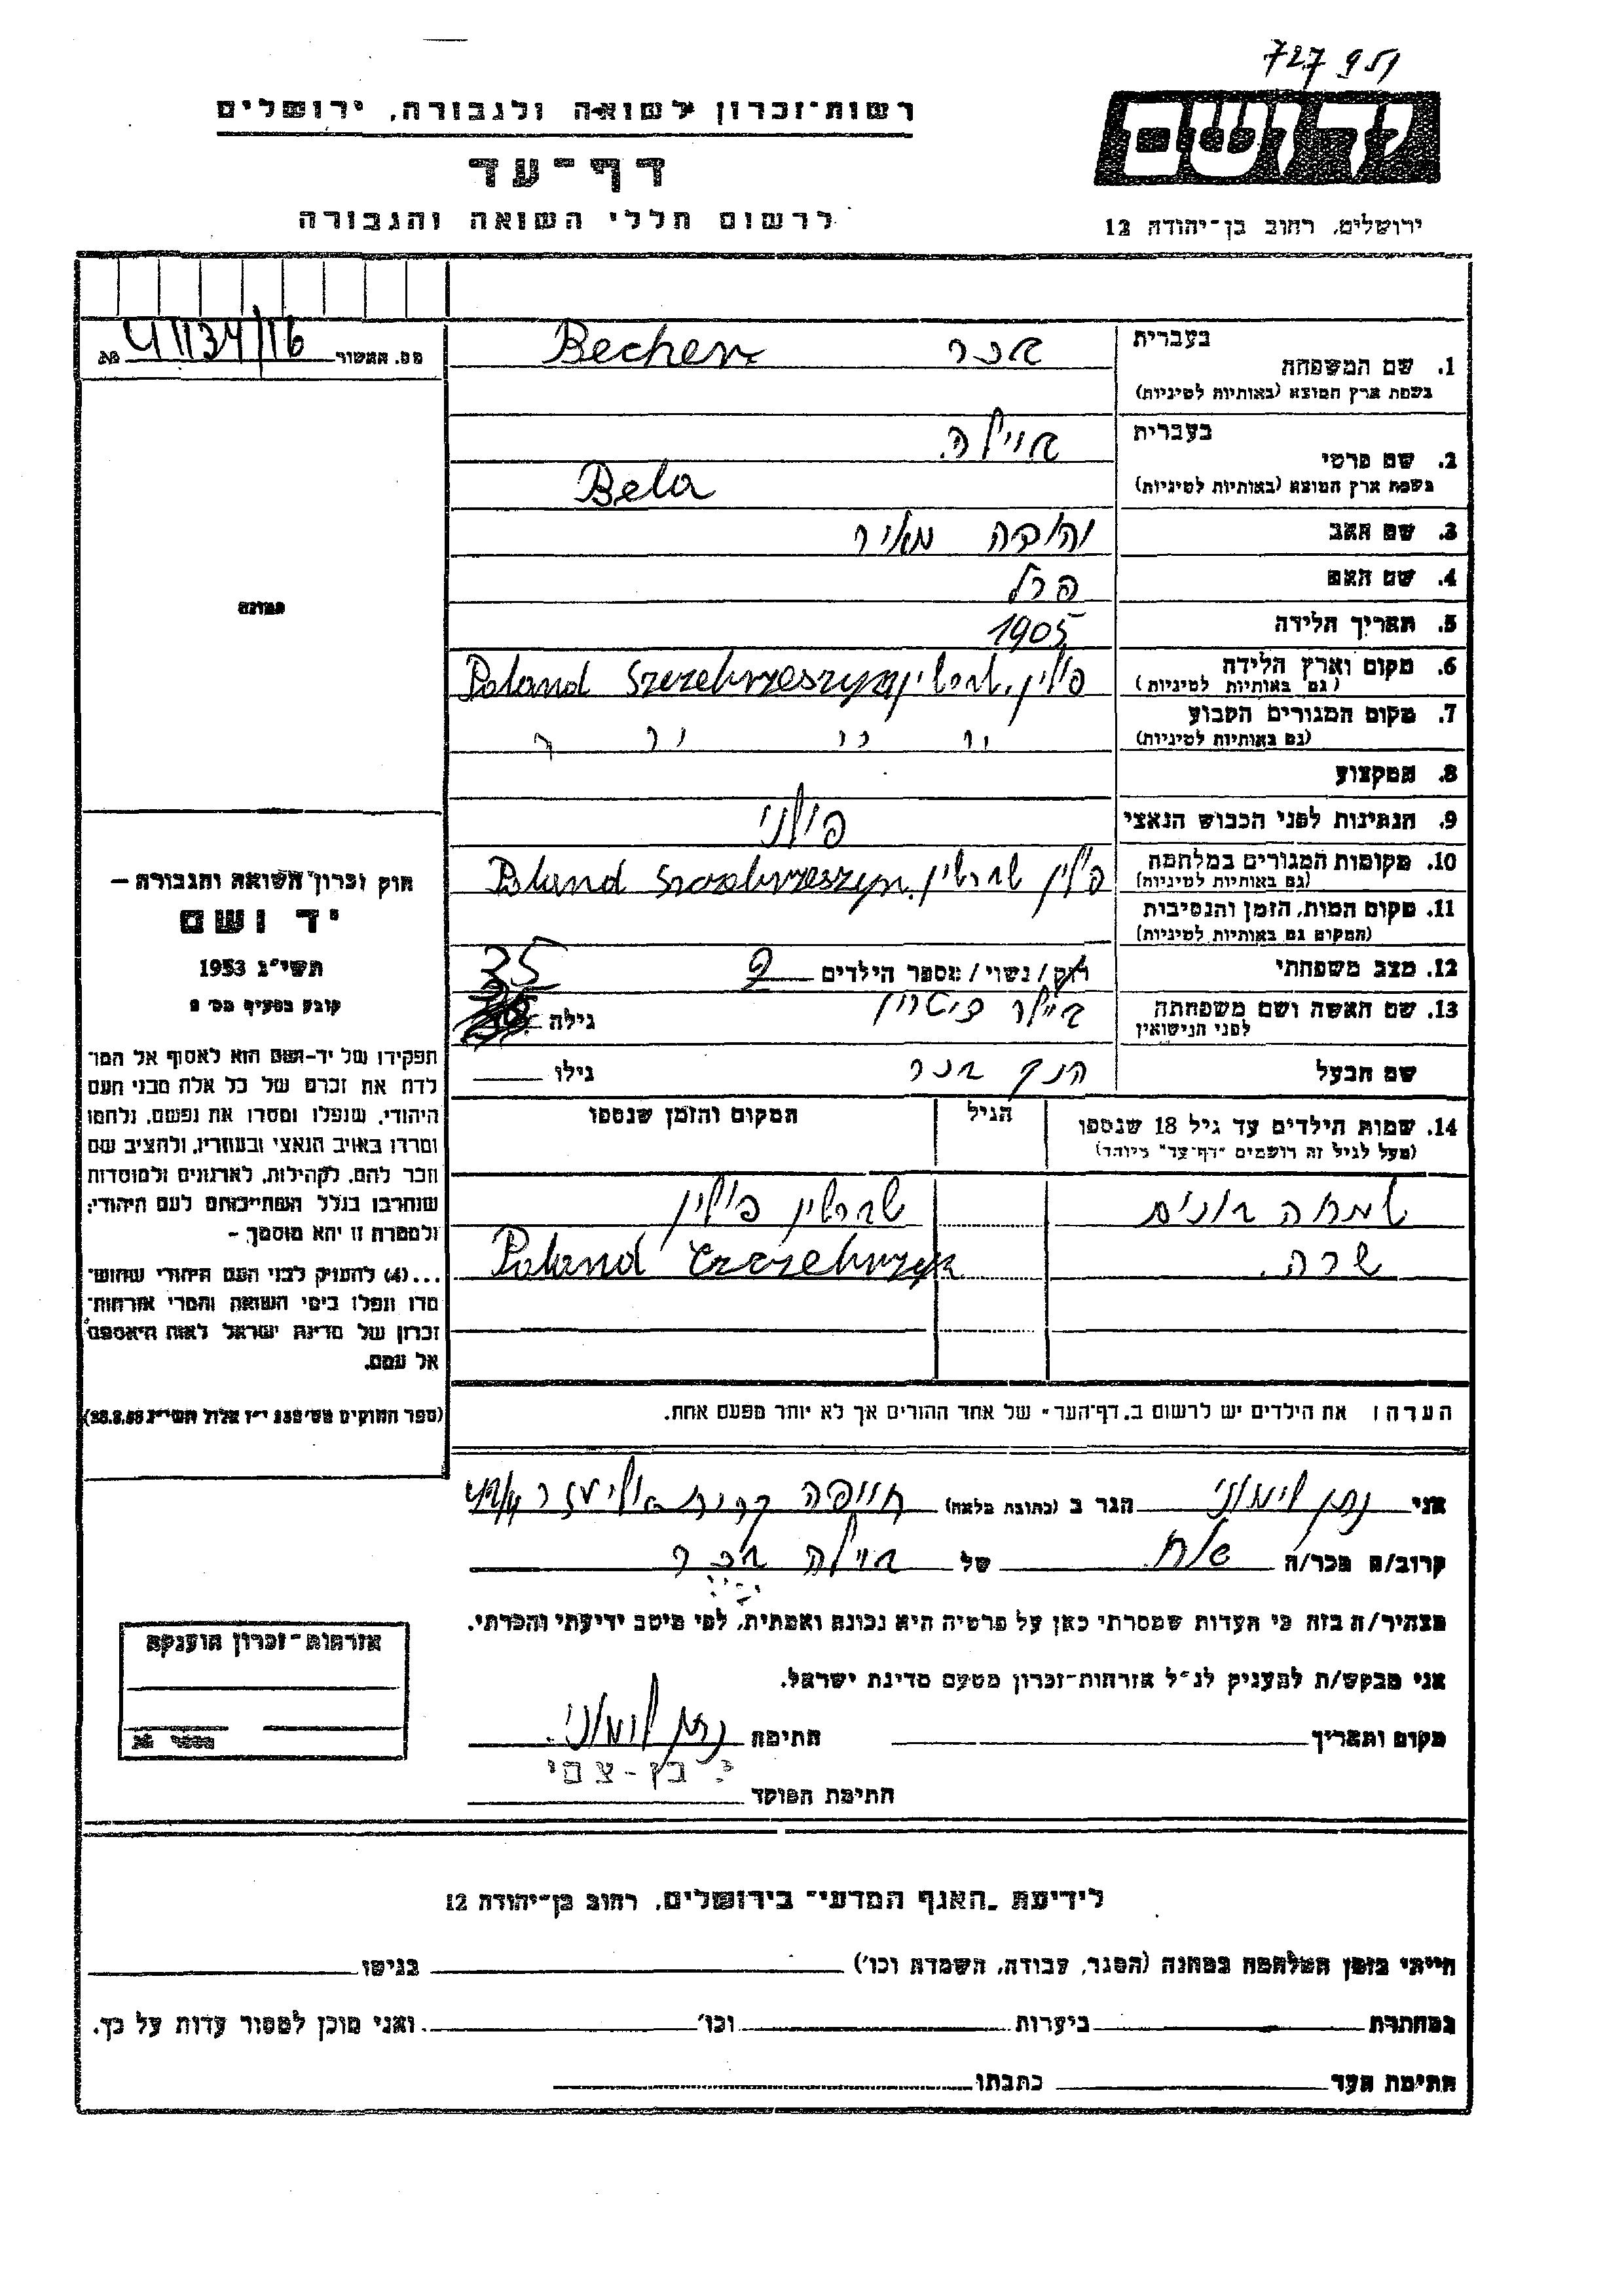 727 951
רשות-זכרון לשואה ולגבורה, ירושלים
ידושם
דף-עד
לרשום חללי השואה והגבורה
ירושלים, רחוב בן-יהודה 12
מס. האשור
בעברית
1. שם המשפחה בכר Becher
(בשפת ארץ המוצא (באותיות לטיניות
בעברית
2. שם פרטי ביילה
(בשפת ארץ המוצא (באותיות לטיניות Bela
3. שם האב מאיר
4. שם האם פרל
5. תאריך הלידה 1905
6. מקום וארץ הלידה פולין Poland Szczebrzeszyn
(גם באותיות לטיניות)
7. מקום המגורים הקבוע
(גם באותיות לטיניות)
8. המקצוע
9. הנתינות לפני הכבוש הנאצי פולני
10. מקומות המגורים במלחמה פולין שברשין Poland Szczebrzeszyn
(גם באותיות לטיניות)
11. מקום המות, הזמן והנסיבות
(המקום גם באותיות לטיניות)
12. מצב משפחתי רוק/נשוי/מספר הילדים 2
13. שם האשה ושם משפחתה ביילה גילה 35
לפני הנישואין
שם הבעל בכר גילו
14. שמות הילדים עד גיל 18 שנספו הגיל המקום והזמן שנספו
(מעל לגיל זה רושמים "דף-עד" מיוחד)
שמחה בונים שברשין פולין
שרה Poland
הערה: את הילדים יש לרשום ב"דף-העד" של אחד ההורים אך לא יותר מפעם אחת.
תמונה
חוק זכרון השואה והגבורה –
יד ושם
תשי"ג 1953
קובע בסעיף מס' 2
תפקידו של יד-ושם הוא לאסוף אל המו-
לדת את זכרם של כל אלה מבני העם
היהודי, שנפלו ומסרו את נפשם, נלחמו
ומרדו באויב הנאצי ובעוזריו, ולהציב שם
וזכר להם, לקהילות, לארגונים ולמוסדות
שנחרבו בגלל השתייכותם לעם היהודי;
ולמטרה זו יהא מוסמך –
...(4) להעניק לבני העם היהודי שהוש-
מדו ונפלו בימי השואה והמרי אזרחות-
זכרון של מדינת ישראל לאות היאספם
אל עמם.
אני נתן הגר ב (כתובת מלאה) חיפה קרית אליעזר
קרוב/ה מכר/ה של ביילה בכר
מצהיר/ה בזה כי העדות שמסרתי כאן על פרטיה היא נכונה ואמתית, לפי מיטב ידיעתי והכרתי.
אני מבקש/ת להעניק לנ"ל אזרחות-זכרון מטעם מדינת ישראל.
מקום ותאריך חתימה נתן
חתימת הפוקד
אזרחות-זכרון הוענקה
לידיעת "האגף המדעי" בירושלים, רחוב בן-יהודה 12
הייתי בזמן המלחמה במחנה (הסגר, עבודה, השמדה וכו') בגיטו
במחתרת ביערות וכו' ואני מוכן למסור עדות על כך.
חתימת העד כתבתו